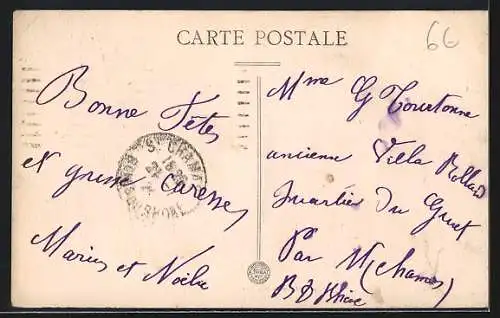 CARTE POSTALE
66
Bonne Fêtes
et grosse Caresses
Marius et Noëlie
Mme G Tourtonne
ancienne Villa Rolland
Quartier Du Guet
Par St Chamas
B D Rhône
ST CHAMAS
BOUCHES-DU-RHÔNE